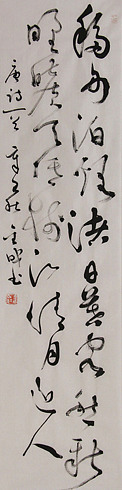 移舟泊烟渚日暮客愁新
野旷天低树江清月近人
唐诗一首